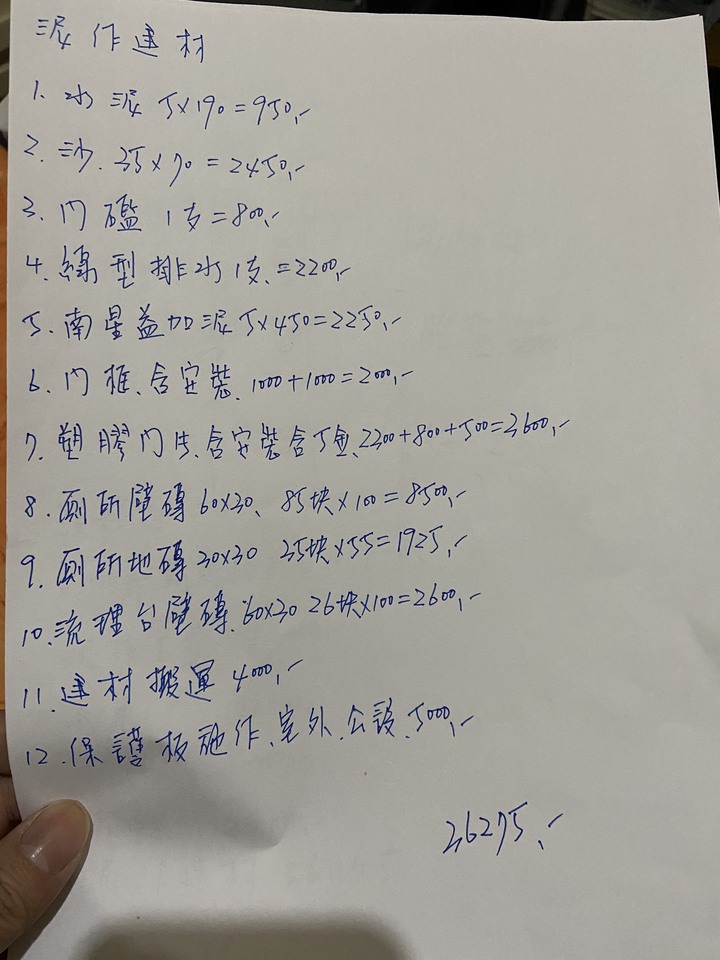 泥作建材
1. 水泥 5×190=950,-
2. 沙. 35×70=2450,-
3. 門礛 1支=800,-
4. 線型排水1支.=2200,-
5. 南星益加泥 5×450=2250,-
6. 門框.含安裝. 1000+1000=2000,-
7. 塑膠門片.含安裝含五金.2300+800+500=3600,-
8. 厠所壁磚 60×30、85块×100=8500,-
9. 厠所地磚 30×30 35块×55=1925,-
10. 流理台壁磚.60×30 26块×100=2600,-
11. 建材搬運 4000,-
12. 保護板施作、室外.公設.5000,-
36275,-